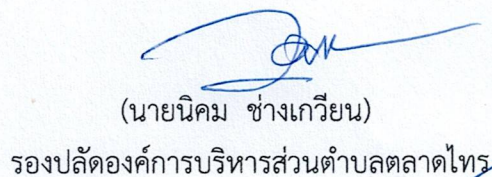 (นายนิคม ช่างเกวียน)
รองปลัดองค์การบริหารส่วนตำบลตลาดไทร